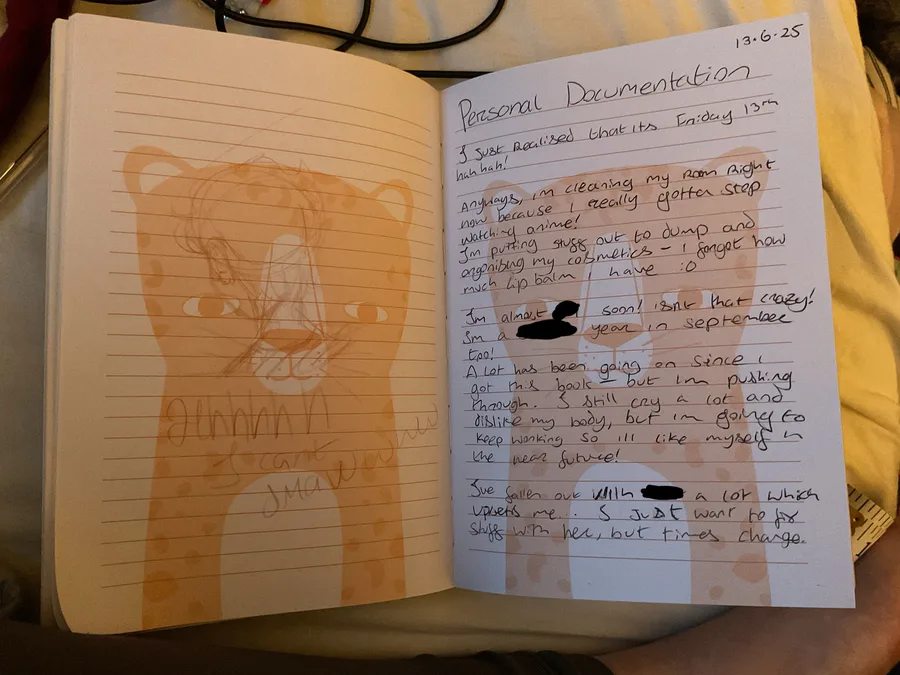 Ahhhhh
I can't
13.6.25
Personal Documentation
I just Realised that its Friday 13th
hah hah!
Anyways, im cleaning my room Right
now because i really gotta stop
watching anime!
Im putting stuff out to dump and
organising my cosmetics - i forgot how
much lip balm i have :O
Im almost soon! isnt that crazy!
Im a year in september
too!
A lot has been going on since i
got this book - but im pushing
through. I still cry a lot and
dislike my body, but im going to
keep working so ill like myself in
the near future!
Ive fallen out with a lot which
upsets me. I JUST want to fix
stuff with her, but times change.